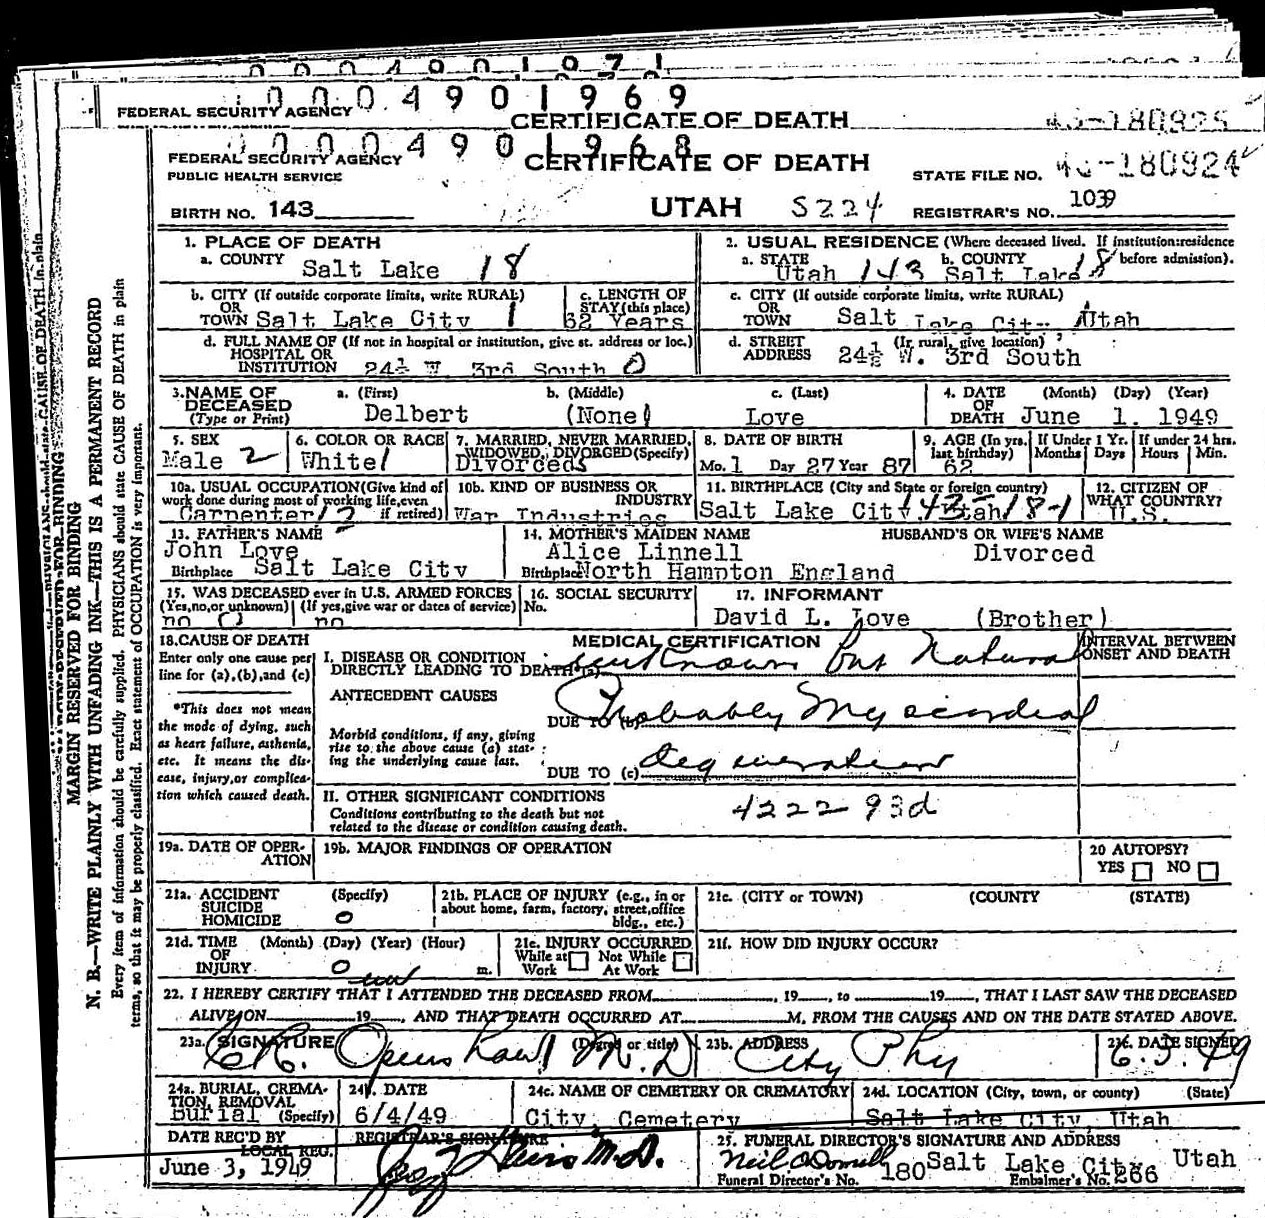 0 0 0 4 9 0 1 9 7 1
0 0 0 4 9 0 1 9 6 9
FEDERAL SECURITY AGENCY CERTIFICATE OF DEATH 43-180925
0 0 0 4 9 0 1 9 6 8
FEDERAL SECURITY AGENCY CERTIFICATE OF DEATH
PUBLIC HEALTH SERVICE STATE FILE NO. 180924
BIRTH NO. 143 UTAH S224 REGISTRAR'S NO. 1039
1. PLACE OF DEATH
a. COUNTY Salt Lake 18
2. USUAL RESIDENCE (Where deceased lived. If institution:residence
a. STATE Utah 143 b. COUNTY Salt Lake 18 before admission).
b. CITY (If outside corporate limits, write RURAL)
OR
TOWN Salt Lake City 1
c. LENGTH OF
STAY (this place)
62 Years
c. CITY (If outside corporate limits, write RURAL)
OR
TOWN Salt Lake City, Utah
d. FULL NAME OF (If not in hospital or institution, give st. address or loc.)
HOSPITAL OR
INSTITUTION 24½ W. 3rd South 0
d. STREET (If rural, give location)
ADDRESS 24½ W. 3rd South
3. NAME OF DECEASED (Type or Print)
a. (First) Delbert
b. (Middle) (None)
c. (Last) Love
4. DATE OF DEATH (Month) (Day) (Year)
June 1. 1949
5. SEX
Male 2
6. COLOR OR RACE
White 1
7. MARRIED, NEVER MARRIED,
WIDOWED, DIVORCED (Specify)
Divorced
8. DATE OF BIRTH
Mo. 1 Day 27 Year 87
9. AGE (In yrs. last birthday)
62
If Under 1 Yr. Months Days
If under 24 hrs. Hours Min.
10a. USUAL OCCUPATION (Give kind of
work done during most of working life, even
if retired) Carpenter
10b. KIND OF BUSINESS OR
INDUSTRY
War Industries
11. BIRTHPLACE (City and State or foreign country)
Salt Lake City, Utah 18-1
12. CITIZEN OF
WHAT COUNTRY?
U.S.
13. FATHER'S NAME
John Love
Birthplace Salt Lake City
14. MOTHER'S MAIDEN NAME
Alice Linnell
Birthplace North Hampton England
HUSBAND'S OR WIFE'S NAME
Divorced
15. WAS DECEASED ever in U.S. ARMED FORCES
(Yes,no,or unknown) (If yes,give war or dates of service)
no 0 no
16. SOCIAL SECURITY
No.
17. INFORMANT
David L. Love (Brother)
18. CAUSE OF DEATH
Enter only one cause per
line for (a),(b),and (c)
*This does not mean
the mode of dying, such
as heart failure, asthenia,
etc. It means the dis-
ease, injury,or complica-
tion which caused death.
MEDICAL CERTIFICATION
INTERVAL BETWEEN
ONSET AND DEATH
I. DISEASE OR CONDITION
DIRECTLY LEADING TO DEATH*(a) unknown but Natural
ANTECEDENT CAUSES
DUE TO (b) Probably Myocardial
Morbid conditions, if any, giving
rise to the above cause (a) stat-
ing the underlying cause last.
DUE TO (c) degeneration
II. OTHER SIGNIFICANT CONDITIONS
Conditions contributing to the death but not
related to the disease or condition causing death.
4222 93d
19a. DATE OF OPER-
ATION
19b. MAJOR FINDINGS OF OPERATION
20 AUTOPSY?
YES NO
21a. ACCIDENT (Specify)
SUICIDE
HOMICIDE 0
21b. PLACE OF INJURY (e.g., in or
about home, farm, factory, street,office
bldg., etc.)
21c. (CITY or TOWN) (COUNTY) (STATE)
21d. TIME (Month) (Day) (Year) (Hour)
OF
INJURY 0 m.
21e. INJURY OCCURRED
While at Work Not While At Work
21f. HOW DID INJURY OCCUR?
22. I HEREBY CERTIFY THAT I ATTENDED THE DECEASED FROM , 19 , to 19 , THAT I LAST SAW THE DECEASED
ALIVE ON 19 , AND THAT DEATH OCCURRED AT M, FROM THE CAUSES AND ON THE DATE STATED ABOVE.
23a. SIGNATURE (Degree or title) M.D
23b. ADDRESS City Phy
23c. DATE SIGNED 6.3.49
24a. BURIAL, CREMA-
TION, REMOVAL
Burial (Specify)
24b. DATE
6/4/49
24c. NAME OF CEMETERY OR CREMATORY
City, Cemetery
24d. LOCATION (City, town, or county) (State)
Salt Lake City, Utah
DATE REC'D BY
LOCAL REG.
June 3, 1949
REGISTRAR'S SIGNATURE
M.D.
25. FUNERAL DIRECTOR'S SIGNATURE AND ADDRESS
Neil O'Donnell Salt Lake City Utah
Funeral Director's No. 180 Embalmer's No. 266
MARGIN RESERVED FOR BINDING
N. B.—WRITE PLAINLY WITH UNFADING INK—THIS IS A PERMANENT RECORD
Every item of information should be carefully supplied. PHYSICIANS should state CAUSE OF DEATH in plain
terms, so that it may be properly classified. Exact statement of OCCUPATION is very important.